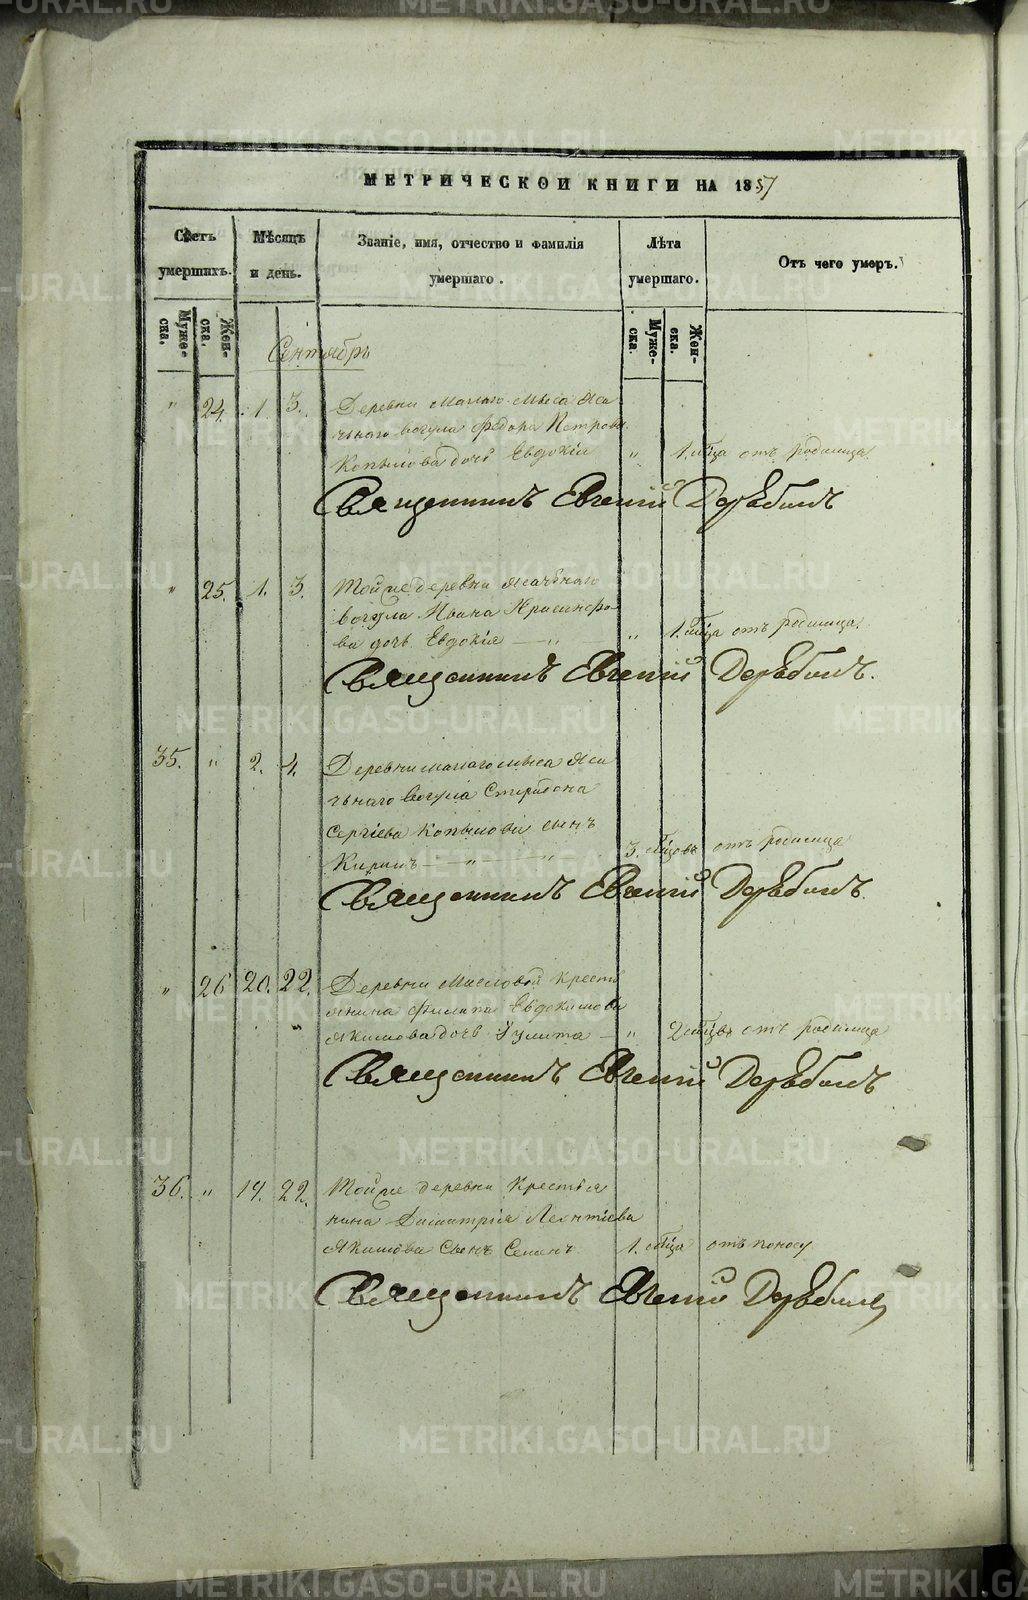 МЕТРИЧЕСКОИ КНИГИ НА 1857
Счетъ умершихъ.
Мѣсяцъ и день.
Званіе, имя, отчество и фамилія умершаго.
Лѣта умершаго.
Отъ чего умеръ.
Муже-ска.
Жен-ска.
Муже-ска.
Жен-ска.
Сентябрь
" 24. 1. 3. Деревни Малаго Мыса Яса
чьнаго вогула Федора Петрова
Копылова дочь Евдокія " 1. мѣца отъ родимца
Священникъ Евгеній Дерябинъ
" 25. 1. 3. Тойже деревни ясачьнаго
вогула Ивана
ва дочь Евдокія " 1. мѣца отъ родимца
Священникъ Евгеній Дерябинъ.
35. " 2. 4. Деревни малаго мыса Яса
чьнаго Вогула Спиридона
Сергіева Копылова сынъ
3. мѣцовъ отъ родимца
Священникъ Евгеній Дерябинъ.
" 26 20. 22. Деревни Кресть
янина Филипа Евдокимова
Якимова дочь Улита " 2 мѣцовъ отъ родимца
Священникъ Евгеній Дерябинъ
36. " 19. 22. Тойже деревни Крестья
нина Димитрія Леонтіева
Якимова Сынъ 1. мѣца отъ поносу
Священникъ Евгеній Дерябинъ
METRIKI.GASO-URAL.RU